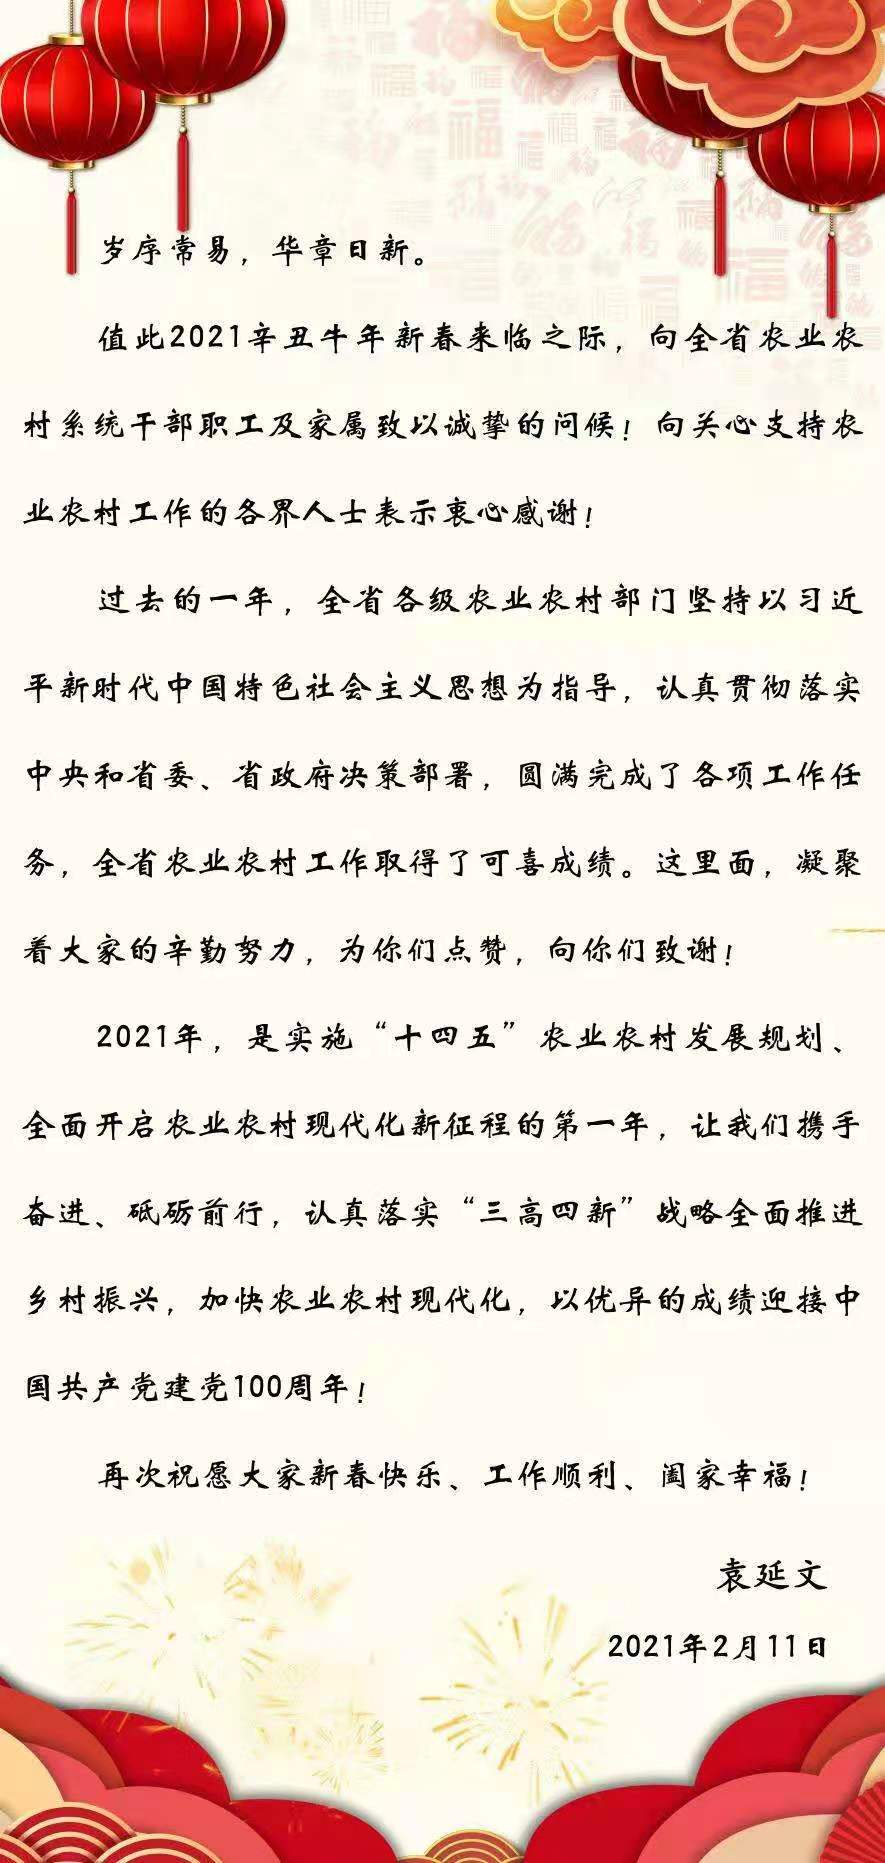 岁序常易，华章日新。
值此2021辛丑牛年新春来临之际，向全省农业农
村系统干部职工及家属致以诚挚的问候！向关心支持农
业农村工作的各界人士表示衷心感谢！
过去的一年，全省各级农业农村部门坚持以习近
平新时代中国特色社会主义思想为指导，认真贯彻落实
中央和省委、省政府决策部署，圆满完成了各项工作任
务，全省农业农村工作取得了可喜成绩。这里面，凝聚
着大家的辛勤努力，为你们点赞，向你们致谢！
2021年，是实施“十四五”农业农村发展规划、
全面开启农业农村现代化新征程的第一年，让我们携手
奋进、砥砺前行，认真落实“三高四新”战略全面推进
乡村振兴，加快农业农村现代化，以优异的成绩迎接中
国共产党建党100周年！
再次祝愿大家新春快乐、工作顺利、阖家幸福！
袁延文
2021年2月11日